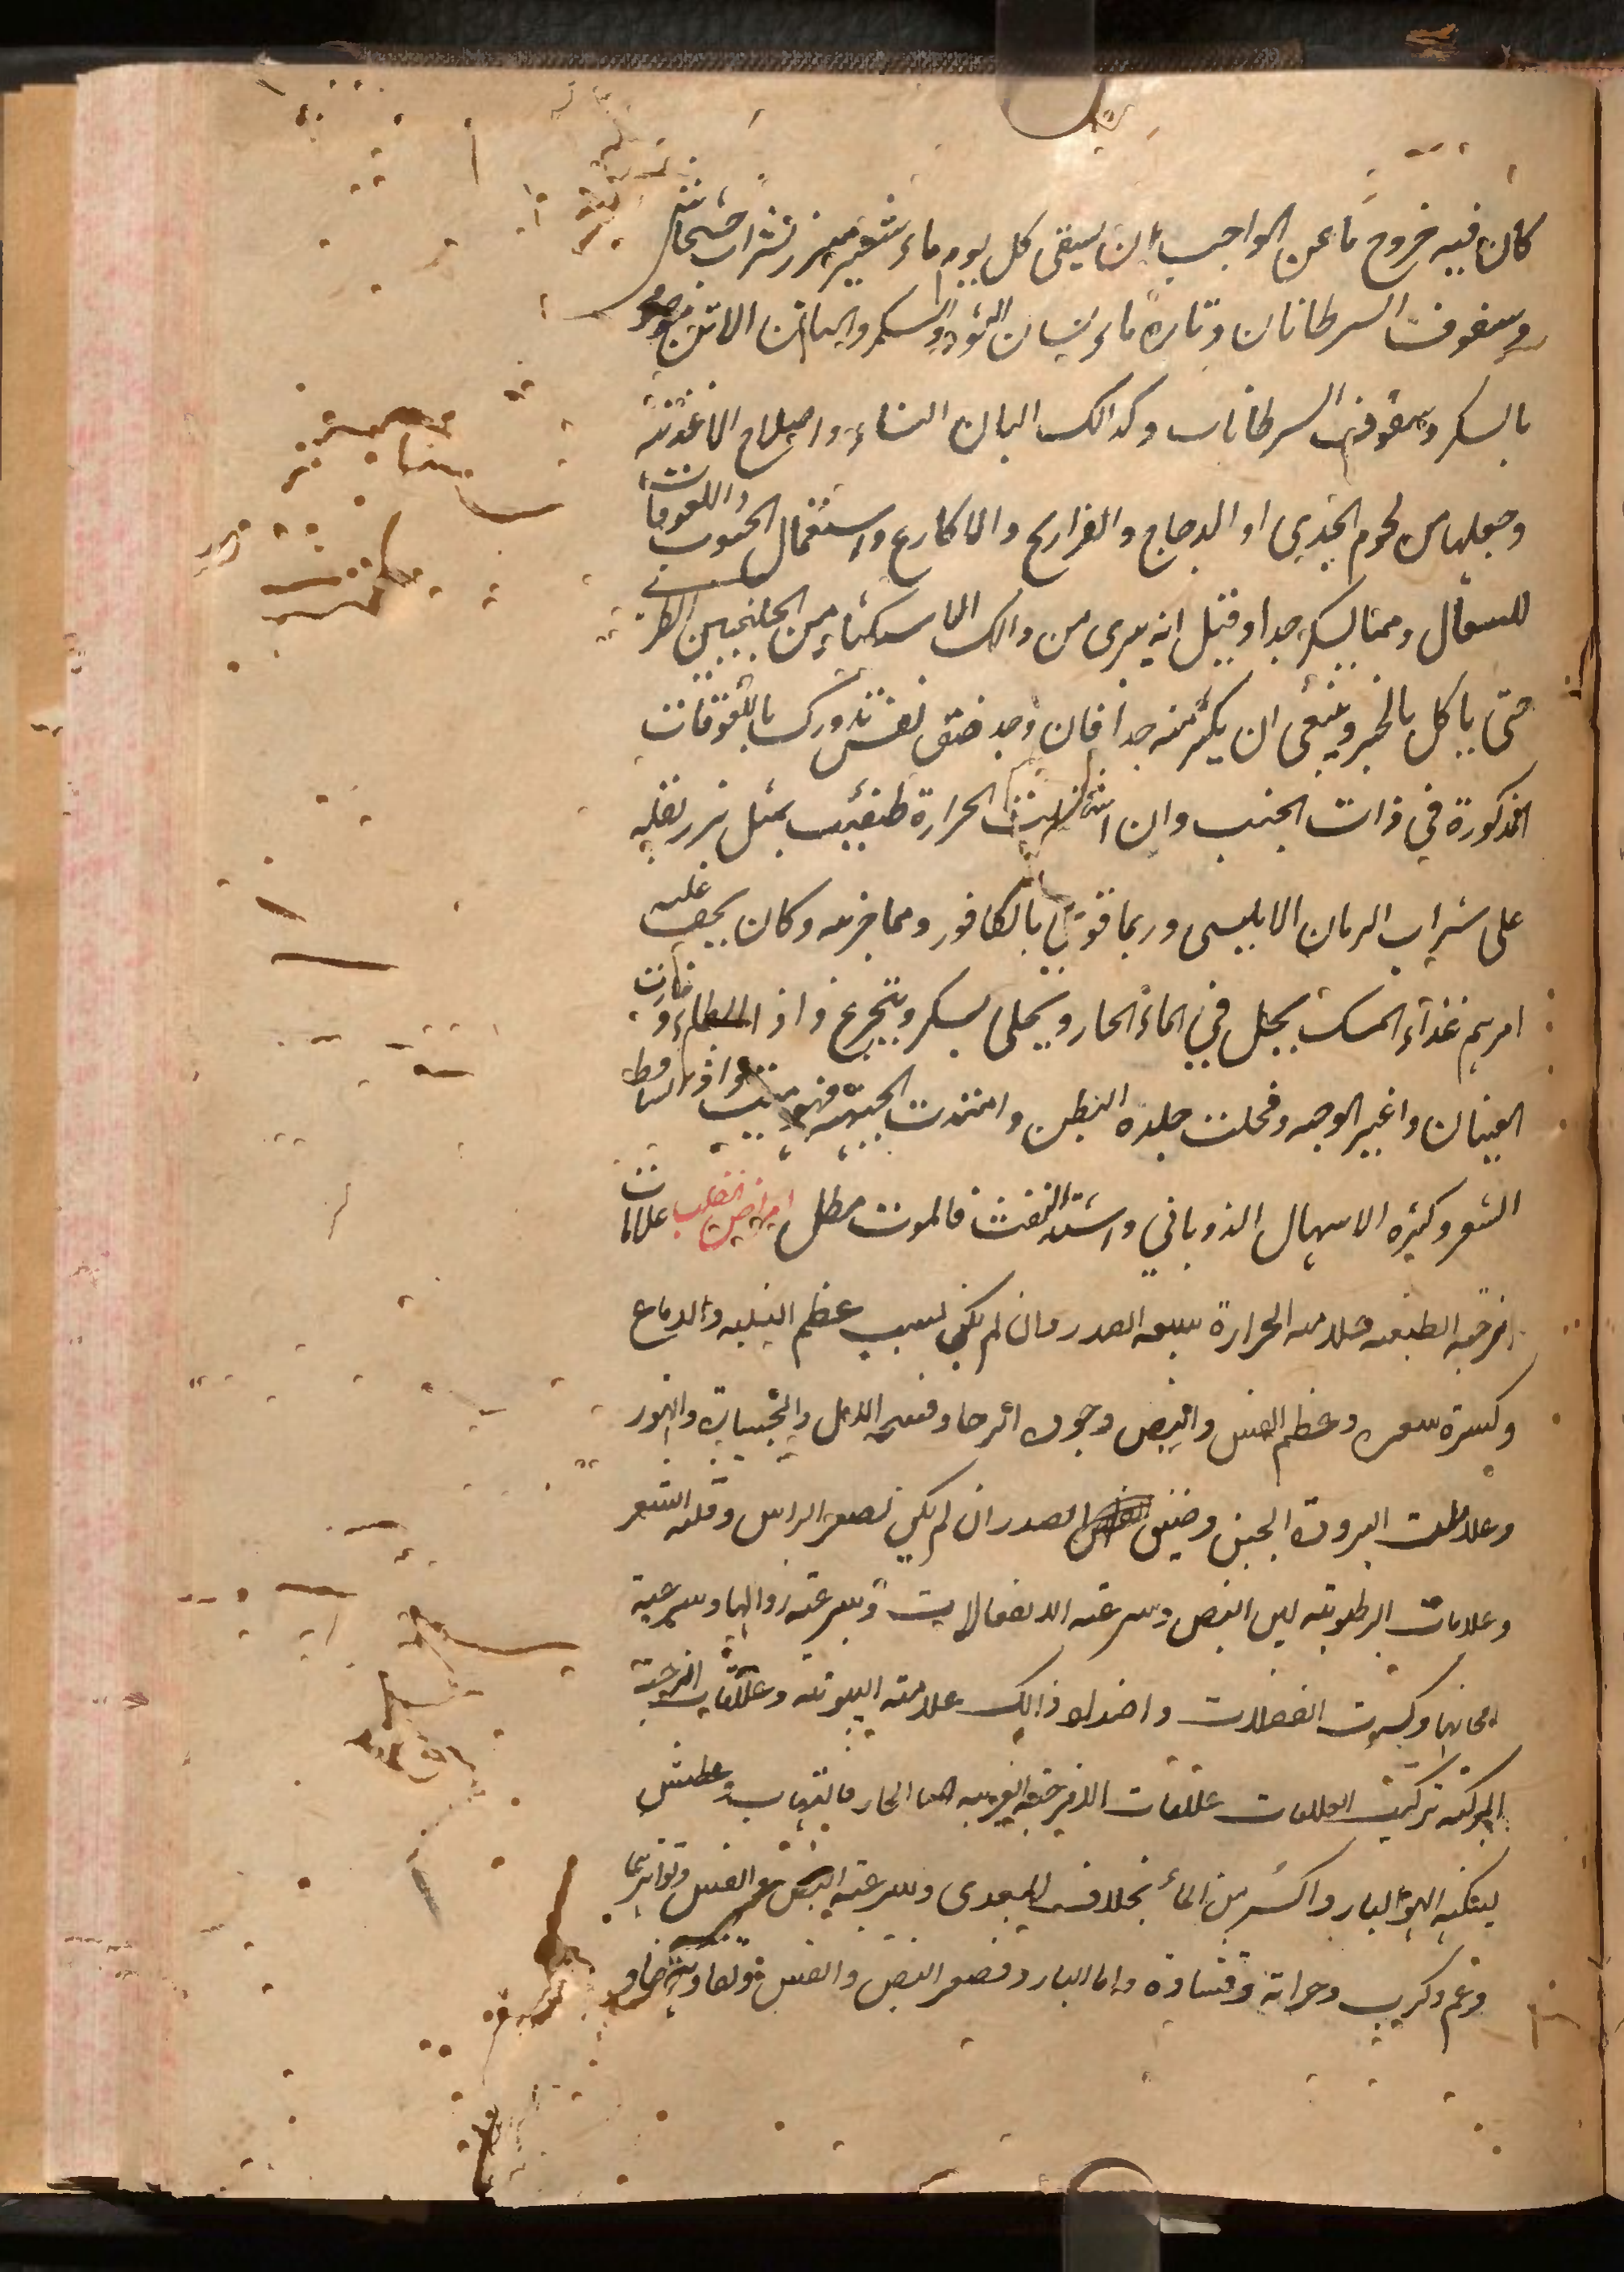 كان فيه خروج ما عن الواجب ان يسقى كل يوم ماء شعير مبزر بشراب خشخاش
وسفوف السرطانات وتارة ماء لسان الثور والسكر والبان الاتن
بالسكر وسفوف السرطانات وكذالك البان النساء واصلاح الاغذية
وجعلها من لحوم الجدي او الدجاج والفراريج والاكارع واستعمال الحبوب واللعوقات
للسعال ومما يسكر جدا وقيل انه يبرى من ذالك الاستكثار من الجلنجبين الطري
حتى ياكل بالخبز وينبغي ان يكثر منه جدا فان وجد ضيق نفس تدورك باللعوقات
المذكورة في ذات الجنب وان اشتدت الحرارة طفئيت بمثل بزر بقلة
على شراب الرمان الابليسى وربما قوى بالكافور ومما جربه وكان يخف عليه
امرهم غذاء المسك يحل في الماء الحار ويحلى بسكر ويتجرع واذا وغارت
العينان واغبر الوجه وقحلت جلده البطن وامتدت الجبهة فهو ميت واذا تساقط
الشعر وكثرة الاسهال الذوباني واشتد النفث فالموت مطل امراض القلب علامات
امزجة الطبيعه علامه الحرارة سعه الصدر وان لم يكن لسبب عظم البنيه والدماغ
وكثرة شعره وعظم النفس والنبض وجودت الرجا وفسحة الامل والتهور
وعلامات البرودة الجبن وضيق الصدر ان لم يكن لصغر الراس وقله الشعر
وعلامات الرطوبته لين النبض وسرعته الانفعالات وسرعته زوالها وسرعة
وكثرت الفضلات واضداد ذالك علامته اليبوسة وعلامات امزجة
المركبه تركيب العلامات علامات الامزجه الغريبه اما الحار فالتهاب وعطش
يسكنه الهوا البارد اكثر من الماء بخلاف المعدى وسرعته النبض والنفس وتواترهما
وغم وكرب وحراة وقساوة واما البارد فصغر النبض والنفس وتفاوتهما و